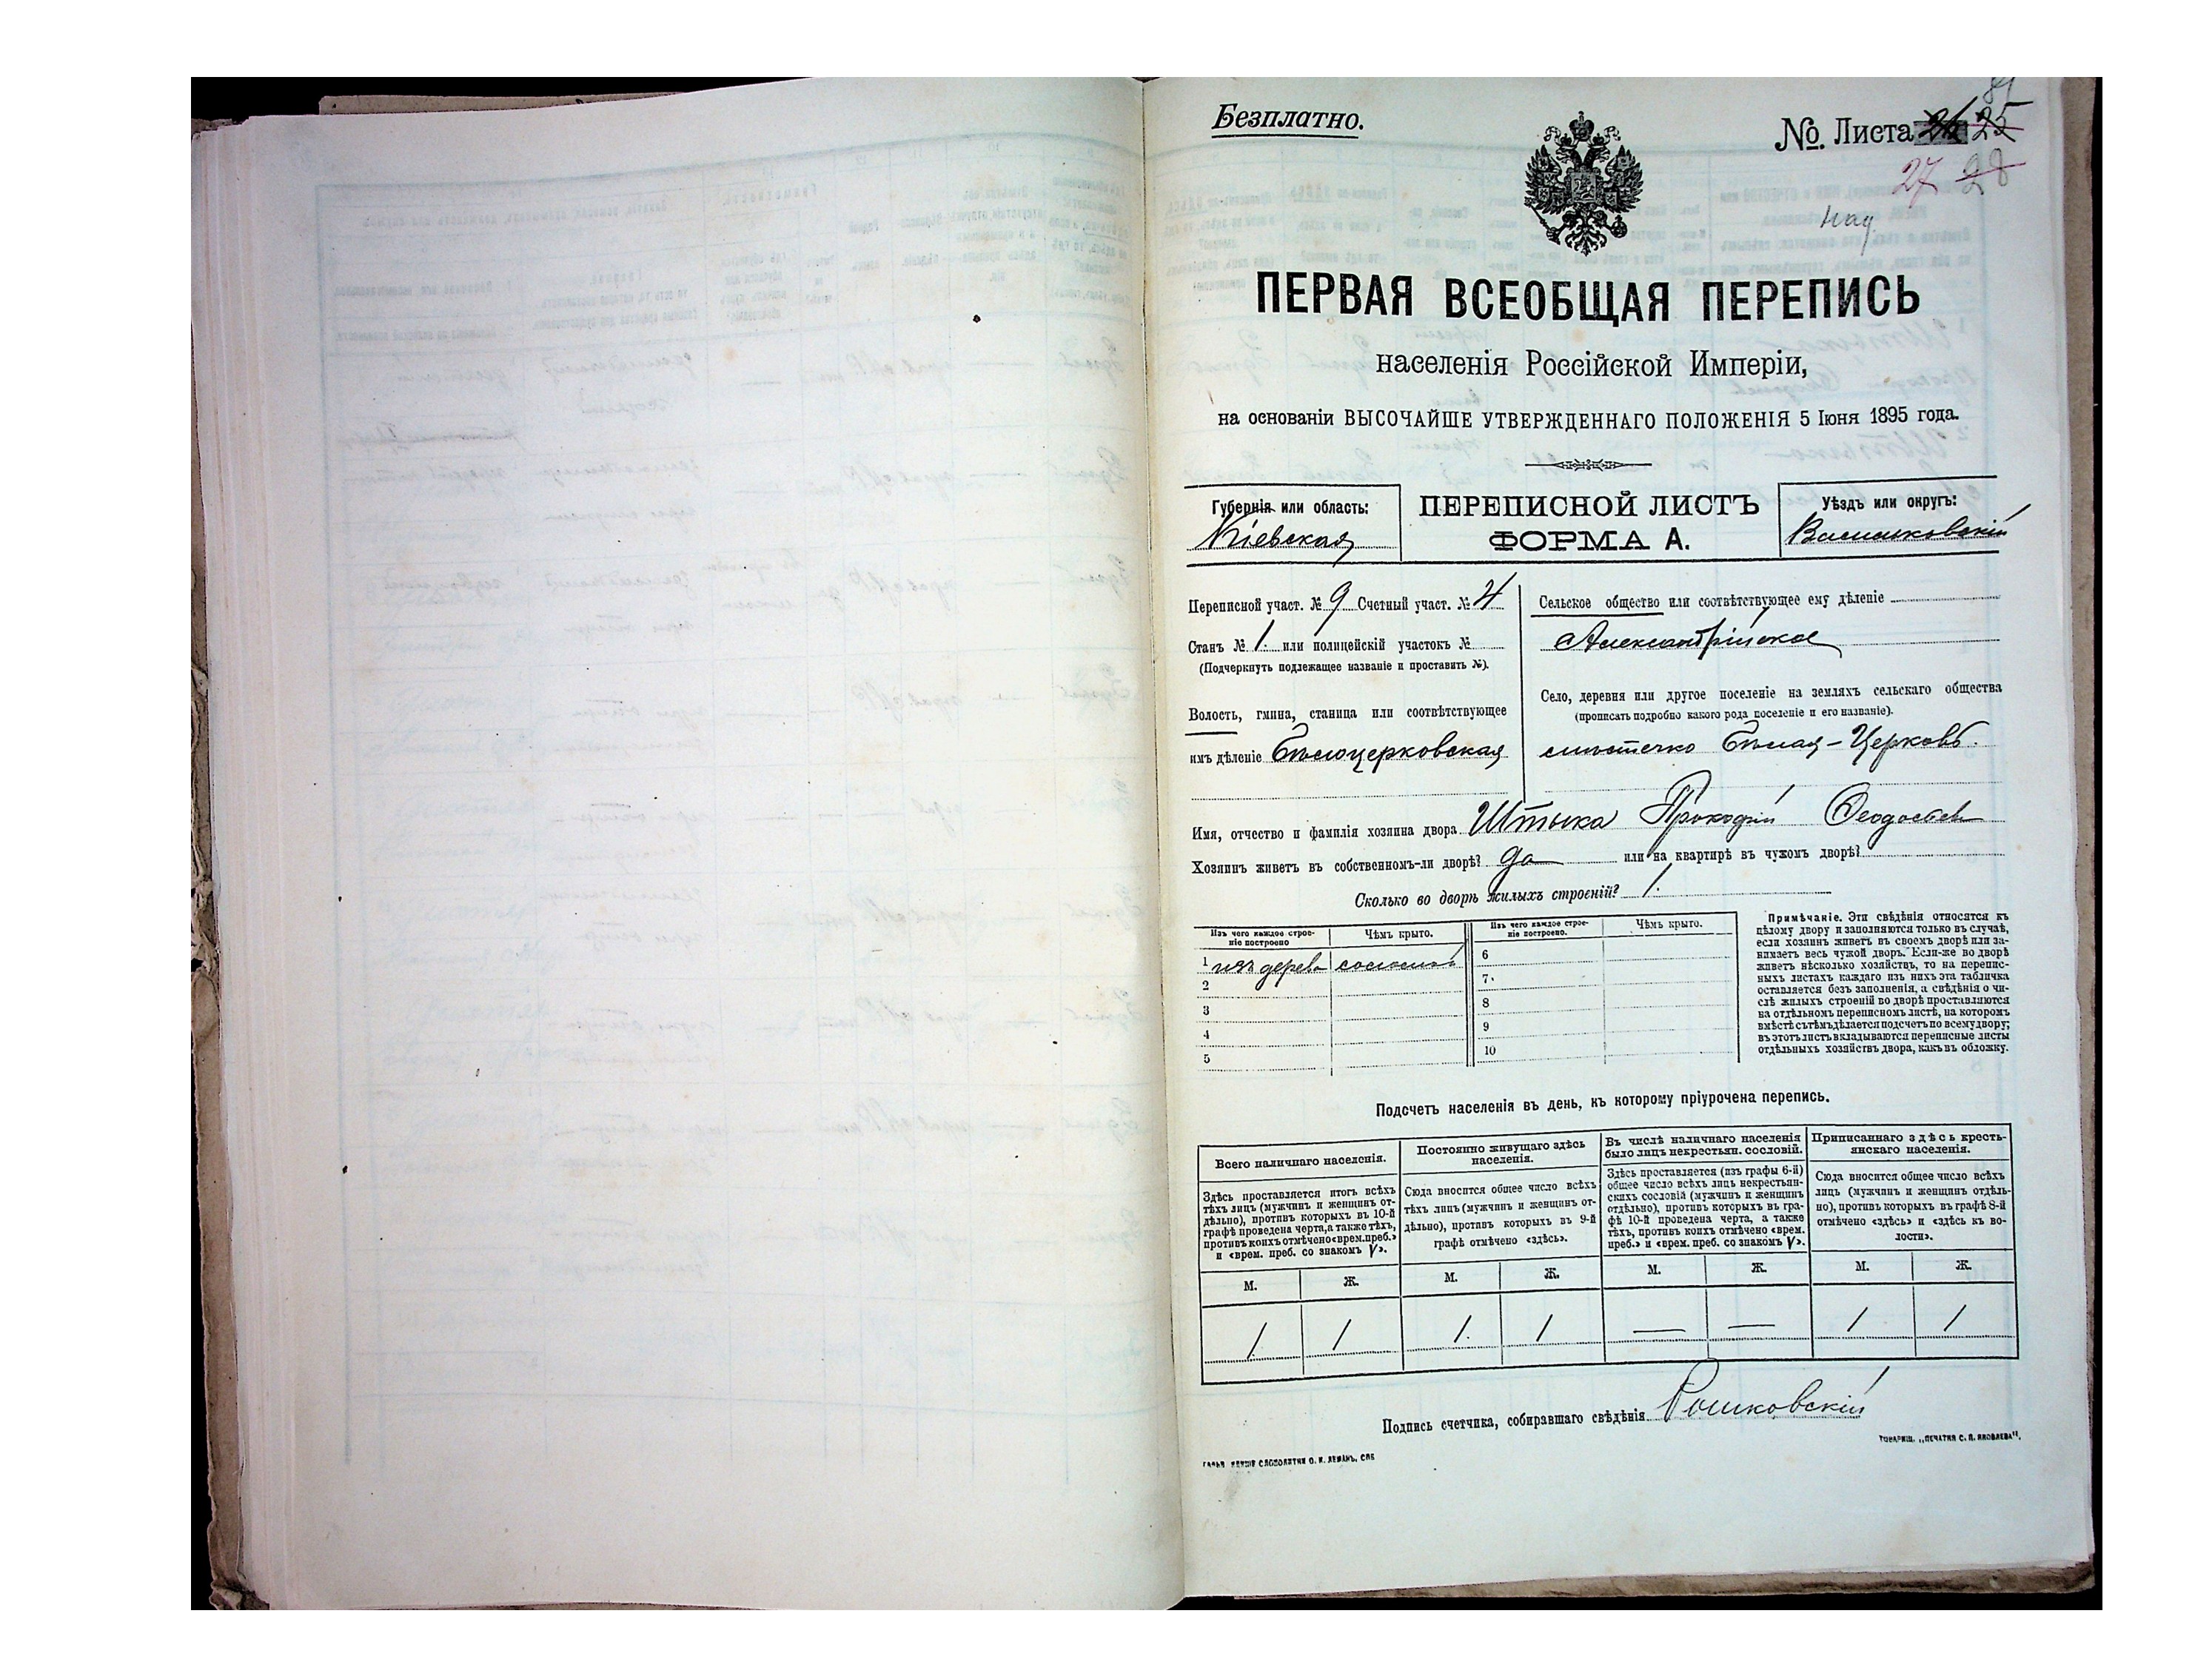 Безплатно.
№. Листа 25
27 28
ПЕРВАЯ ВСЕОБЩАЯ ПЕРЕПИСЬ
населенія Россійской Имперіи,
на основаніи ВЫСОЧАЙШЕ УТВЕРЖДЕННАГО ПОЛОЖЕНІЯ 5 Іюня 1895 года.
Губернія или область:
Кіевская
ПЕРЕПИСНОЙ ЛИСТЪ
ФОРМА А.
Уѣздъ или округъ:
Васильковскій
Переписной участ. № 9 Счетный участ. № 4
Станъ № 1. или полицейскій участокъ №
(Подчеркнуть подлежащее названіе и проставить №).
Волость, гмина, станица или соотвѣтствующее
имъ дѣленіе Бѣлоцерковская
Сельское общество или соотвѣтствующее ему дѣленіе
Александрійское
Село, деревня или другое поселеніе на земляхъ сельскаго общества
(прописать подробно какого рода поселеніе и его названіе).
мѣстечко Бѣлая-Церковь.
Имя, отчество и фамилія хозяина двора Штыка Прокофій Феодосіев
Хозяинъ живетъ въ собственномъ-ли дворѣ? да или на квартирѣ въ чужомъ дворѣ?
Сколько во дворѣ жилыхъ строеній? 1.
Изъ чего каждое строе-
ніе построено
Чѣмъ крыто.
Изъ чего каждое строе-
ніе построено.
Чѣмъ крыто.
1 изъ дерева соломой
2
3
4
5
6
7.
8
9
10
Примѣчаніе. Эти свѣдѣнія относятся къ
цѣлому двору и заполняются только въ случаѣ,
если хозяинъ живетъ въ своемъ дворѣ или за-
нимаетъ весь чужой дворъ. Если-же во дворѣ
живетъ нѣсколько хозяйствъ, то на перепис-
ныхъ листахъ каждаго изъ нихъ эта табличка
оставляется безъ заполненія, а свѣдѣнія о чи-
слѣ жилыхъ строеній во дворѣ проставляются
на отдѣльномъ переписномъ листѣ, на которомъ
вмѣстѣ съ тѣмъ дѣлается подсчетъ по всему двору;
въ этотъ листъ вкладываются переписные листы
отдѣльныхъ хозяйствъ двора, какъ въ обложку.
Подсчетъ населенія въ день, къ которому пріурочена перепись.
Всего наличнаго населенія.
Здѣсь проставляется итогъ всѣхъ
тѣхъ лицъ (мужчинъ и женщинъ от-
дѣльно), противъ которыхъ въ 10-й
графѣ проведена черта, а также тѣхъ,
противъ коихъ отмѣчено «врем. преб.»
и «врем. преб. со знакомъ V».
Постоянно живущаго здѣсь
населенія.
Сюда вносится общее число всѣхъ
тѣхъ лицъ (мужчинъ и женщинъ от-
дѣльно), противъ которыхъ въ 9-й
графѣ отмѣчено «здѣсь».
Въ числѣ наличнаго населенія
было лицъ некрестьян. сословій.
Здѣсь проставляется (изъ графы 6-й)
общее число всѣхъ лицъ некрестьян-
скихъ сословій (мужчинъ и женщинъ
отдѣльно), противъ которыхъ въ гра-
фѣ 10-й проведена черта, а также
тѣхъ, противъ коихъ отмѣчено «врем.
преб.» и «врем. преб. со знакомъ V».
Приписаннаго здѣсь кресть-
янскаго населенія.
Сюда вносится общее число всѣхъ
лицъ (мужчинъ и женщинъ отдѣль-
но), противъ которыхъ въ графѣ 8-й
отмѣчено «здѣсь» и «здѣсь къ во-
лости».
М. Ж. М. Ж. М. Ж. М. Ж.
1. 1 1. 1 — — 1 1
Подпись счетчика, собиравшаго свѣдѣнія Рошковскій
ТОВАРИЩ. „ПЕЧАТНЯ С. П. ЯКОВЛЕВА".
СЛОВОЛИТНИ О. И. ЛЕМАНЪ, СПБ